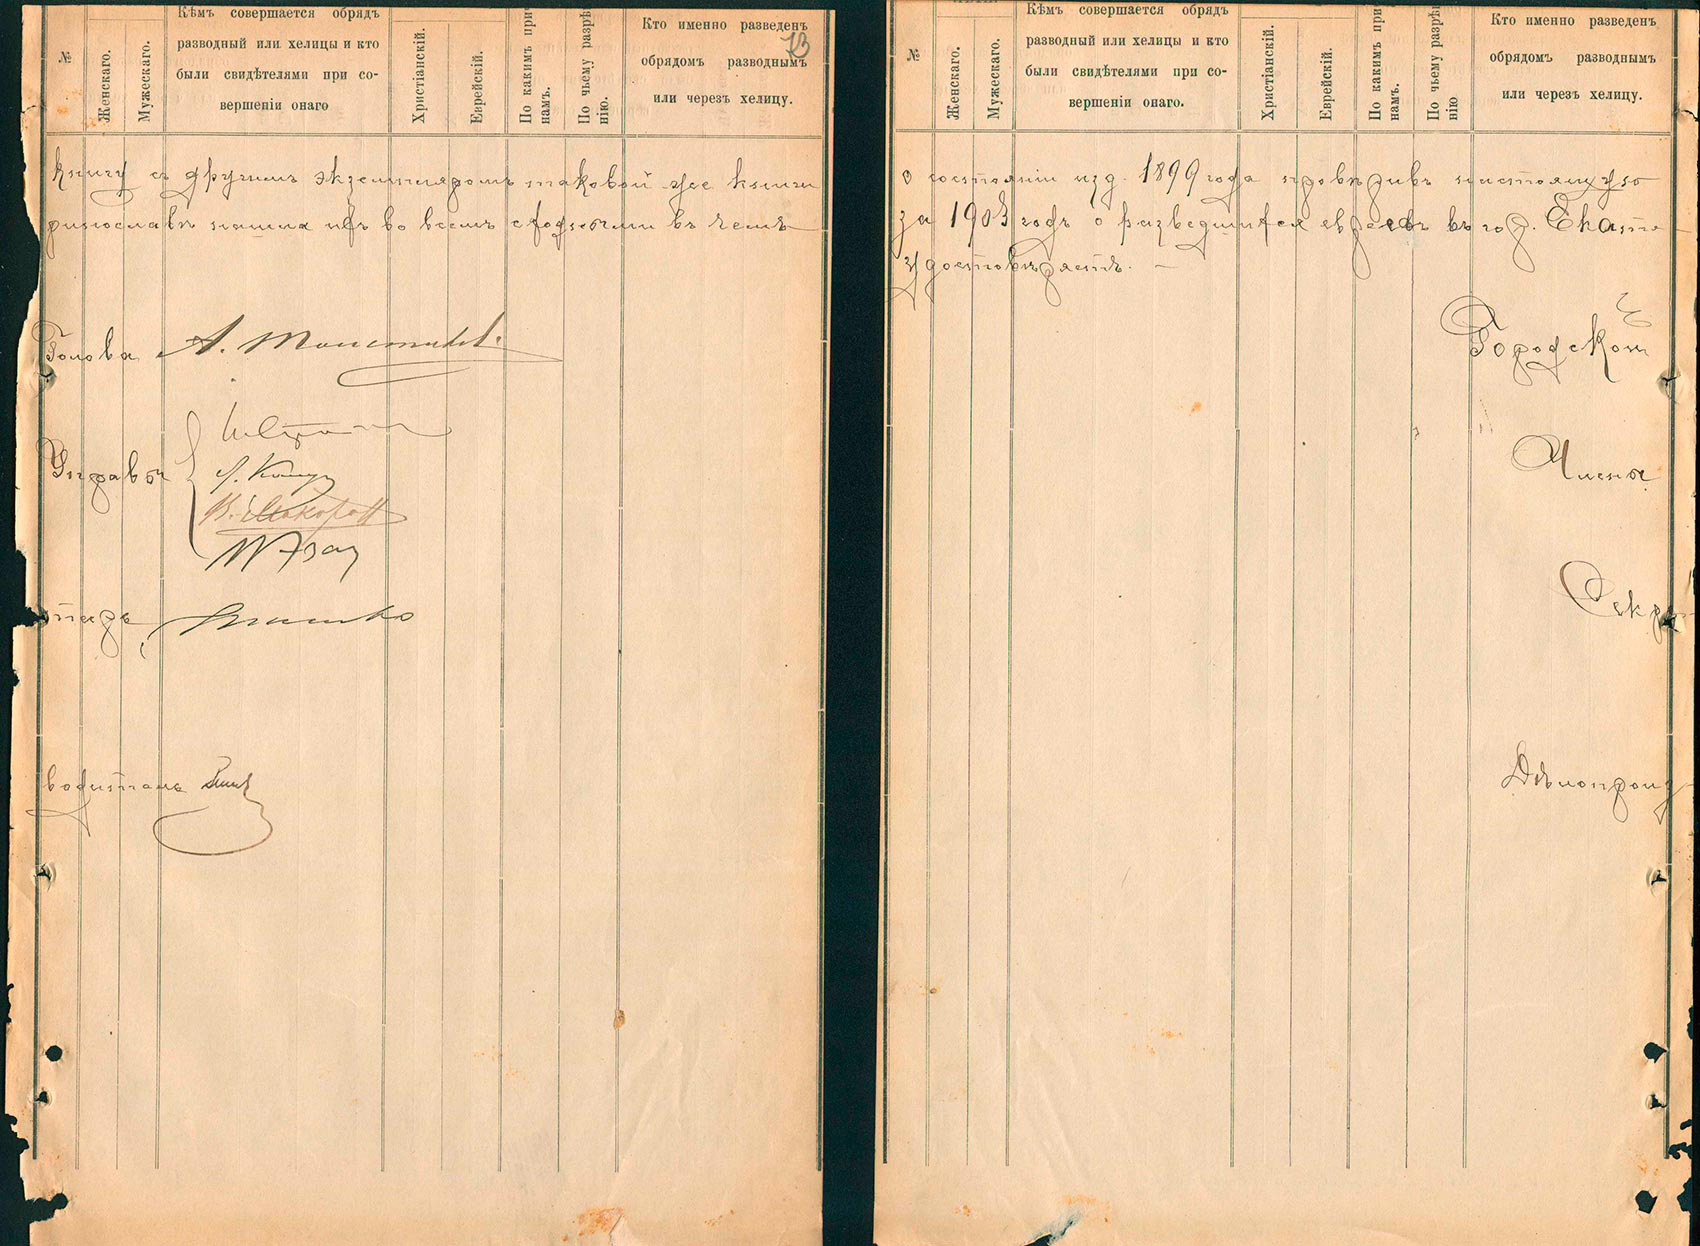 73
№
Женскаго.
Мужескаго.
Кѣмъ совершается обрядъ
разводный или хелицы и кто
были свидѣтелями при со-
вершеніи онаго
Христіанскій.
Еврейскій.
По какимъ при
намъ.
По чьему разрѣ
нію.
Кто именно разведенъ
обрядомъ разводнымъ
или через хелицу.
книгу съ другимъ экземпляромъ таковой же книги
ринославѣ нашла ихъ во всемъ сходными въ чемъ
Голова А. Толстиковъ
Управы
В. Мокоровъ
тарь
водитель
№
Женскаго.
Мужескаго.
Кѣмъ совершается обрядъ
разводный или хелицы и кто
были свидѣтелями при со-
вершеніи онаго.
Христіанскій.
Еврейскій.
По какимъ при
намъ.
По чьему разрѣ
нію
Кто именно разведенъ
обрядомъ разводнымъ
или черезъ хелицу.
о состояніи изд. 1899 года провѣривъ настоящую
за 1903 годъ о разведшихся евреевъ въ гор. Екате-
удостовѣряетъ. —
Городской
Члены
Секре-
Дѣлопроиз-